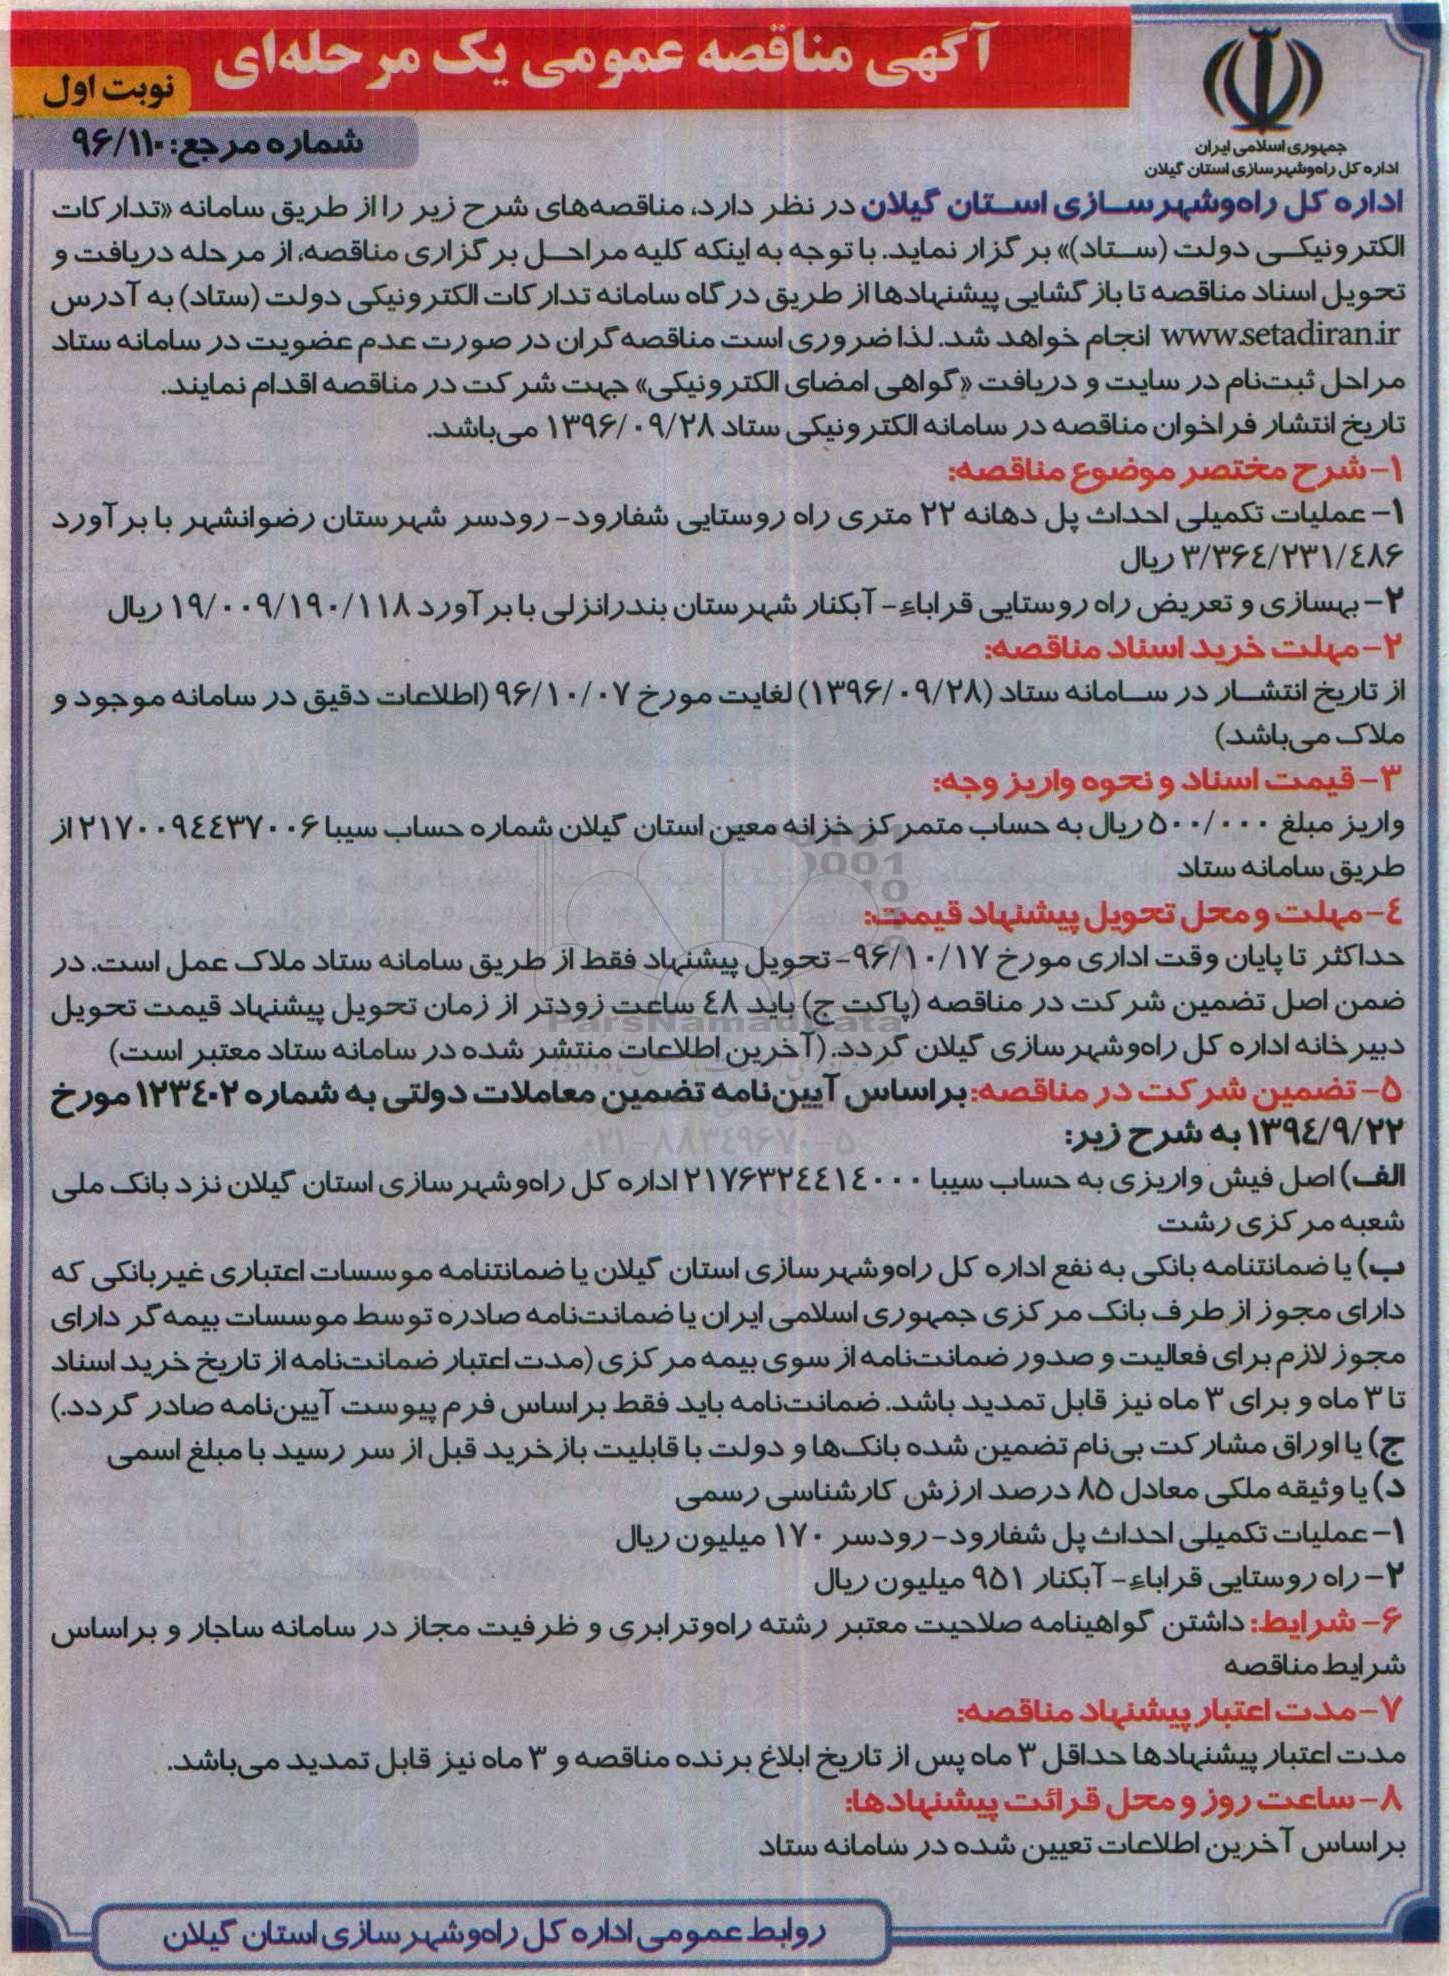 آگهی مناقصه عمومی یک مرحله‌ای
نوبت اول
شماره مرجع: ۹۶/۱۱۰
جمهوری اسلامی ایران
اداره کل راه‌وشهرسازی استان گیلان
اداره کل راه‌وشهرسازی استان گیلان در نظر دارد، مناقصه‌های شرح زیر را از طریق سامانه «تدارکات
الکترونیکی دولت (ستاد)» برگزار نماید. با توجه به اینکه کلیه مراحل برگزاری مناقصه، از مرحله دریافت و
تحویل اسناد مناقصه تا بازگشایی پیشنهادها از طریق درگاه سامانه تدارکات الکترونیکی دولت (ستاد) به آدرس
www.setadiran.ir انجام خواهد شد. لذا ضروری است مناقصه‌گران در صورت عدم عضویت در سامانه ستاد
مراحل ثبت‌نام در سایت و دریافت «گواهی امضای الکترونیکی» جهت شرکت در مناقصه اقدام نمایند.
تاریخ انتشار فراخوان مناقصه در سامانه الکترونیکی ستاد ۱۳۹۶/۰۹/۲۸ می‌باشد.
۱- شرح مختصر موضوع مناقصه:
۱- عملیات تکمیلی احداث پل دهانه ۲۲ متری راه روستایی شفارود- رودسر شهرستان رضوانشهر با برآورد
۳/۳۶۴/۲۳۱/۴۸۶ ریال
۲- بهسازی و تعریض راه روستایی قراباء- آبکنار شهرستان بندرانزلی با برآورد ۱۹/۰۰۹/۱۹۰/۱۱۸ ریال
۲- مهلت خرید اسناد مناقصه:
از تاریخ انتشار در سامانه ستاد (۱۳۹۶/۰۹/۲۸) لغایت مورخ ۹۶/۱۰/۰۷ (اطلاعات دقیق در سامانه موجود و
ملاک می‌باشد)
۳- قیمت اسناد و نحوه واریز وجه:
واریز مبلغ ۵۰۰/۰۰۰ ریال به حساب متمرکز خزانه معین استان گیلان شماره حساب سیبا ۲۱۷۰۰۹۴۴۳۷۰۰۶ از
طریق سامانه ستاد
۴- مهلت و محل تحویل پیشنهاد قیمت:
حداکثر تا پایان وقت اداری مورخ ۹۶/۱۰/۱۷- تحویل پیشنهاد فقط از طریق سامانه ستاد ملاک عمل است. در
ضمن اصل تضمین شرکت در مناقصه (پاکت ج) باید ۴۸ ساعت زودتر از زمان تحویل پیشنهاد قیمت تحویل
ParsNamadData
دبیرخانه اداره کل راه‌وشهرسازی گیلان گردد. (آخرین اطلاعات منتشر شده در سامانه ستاد معتبر است)
۵- تضمین شرکت در مناقصه: براساس آیین‌نامه تضمین معاملات دولتی به شماره ۱۲۳۴۰۲ مورخ
۱۳۹۴/۹/۲۲ به شرح زیر:
۰۲۱-۸۸۳۴۹۶۷۰-۵
الف) اصل فیش واریزی به حساب سیبا ۲۱۷۶۳۲۴۴۱۴۰۰۰ اداره کل راه‌وشهرسازی استان گیلان نزد بانک ملی
شعبه مرکزی رشت
ب) یا ضمانتنامه بانکی به نفع اداره کل راه‌وشهرسازی استان گیلان یا ضمانتنامه موسسات اعتباری غیربانکی که
دارای مجوز از طرف بانک مرکزی جمهوری اسلامی ایران یا ضمانت‌نامه صادره توسط موسسات بیمه‌گر دارای
مجوز لازم برای فعالیت و صدور ضمانت‌نامه از سوی بیمه مرکزی (مدت اعتبار ضمانت‌نامه از تاریخ خرید اسناد
تا ۳ ماه و برای ۳ ماه نیز قابل تمدید باشد. ضمانت‌نامه باید فقط براساس فرم پیوست آیین‌نامه صادر گردد.)
ج) یا اوراق مشارکت بی‌نام تضمین شده بانک‌ها و دولت با قابلیت بازخرید قبل از سر رسید با مبلغ اسمی
د) یا وثیقه ملکی معادل ۸۵ درصد ارزش کارشناسی رسمی
۱- عملیات تکمیلی احداث پل شفارود- رودسر ۱۷۰ میلیون ریال
۲- راه روستایی قراباء- آبکنار ۹۵۱ میلیون ریال
۶- شرایط: داشتن گواهینامه صلاحیت معتبر رشته راه‌وترابری و ظرفیت مجاز در سامانه ساجار و براساس
شرایط مناقصه
۷- مدت اعتبار پیشنهاد مناقصه:
مدت اعتبار پیشنهادها حداقل ۳ ماه پس از تاریخ ابلاغ برنده مناقصه و ۳ ماه نیز قابل تمدید می‌باشد.
۸- ساعت روز و محل قرائت پیشنهادها:
براساس آخرین اطلاعات تعیین شده در سامانه ستاد
روابط عمومی اداره کل راه‌وشهرسازی استان گیلان